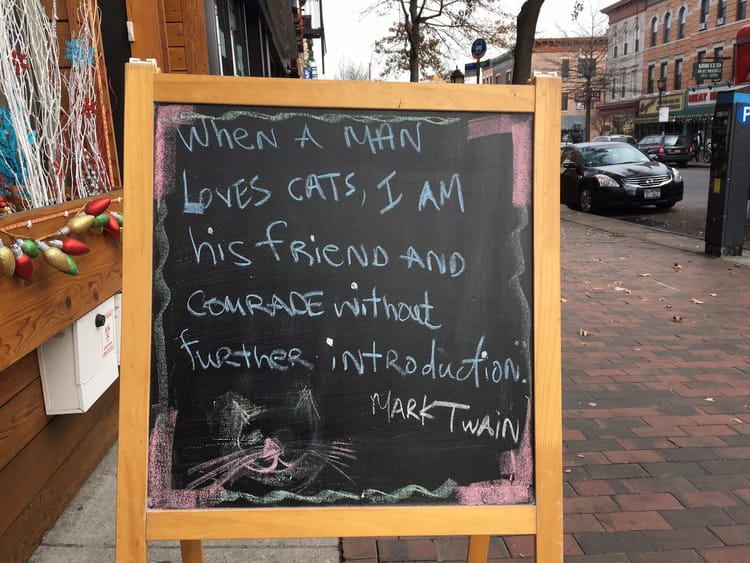 When A MAN
LOVES CATS, I AM
his friEND AND
COMRADE without
further introduction."
MARK TWAIN
P